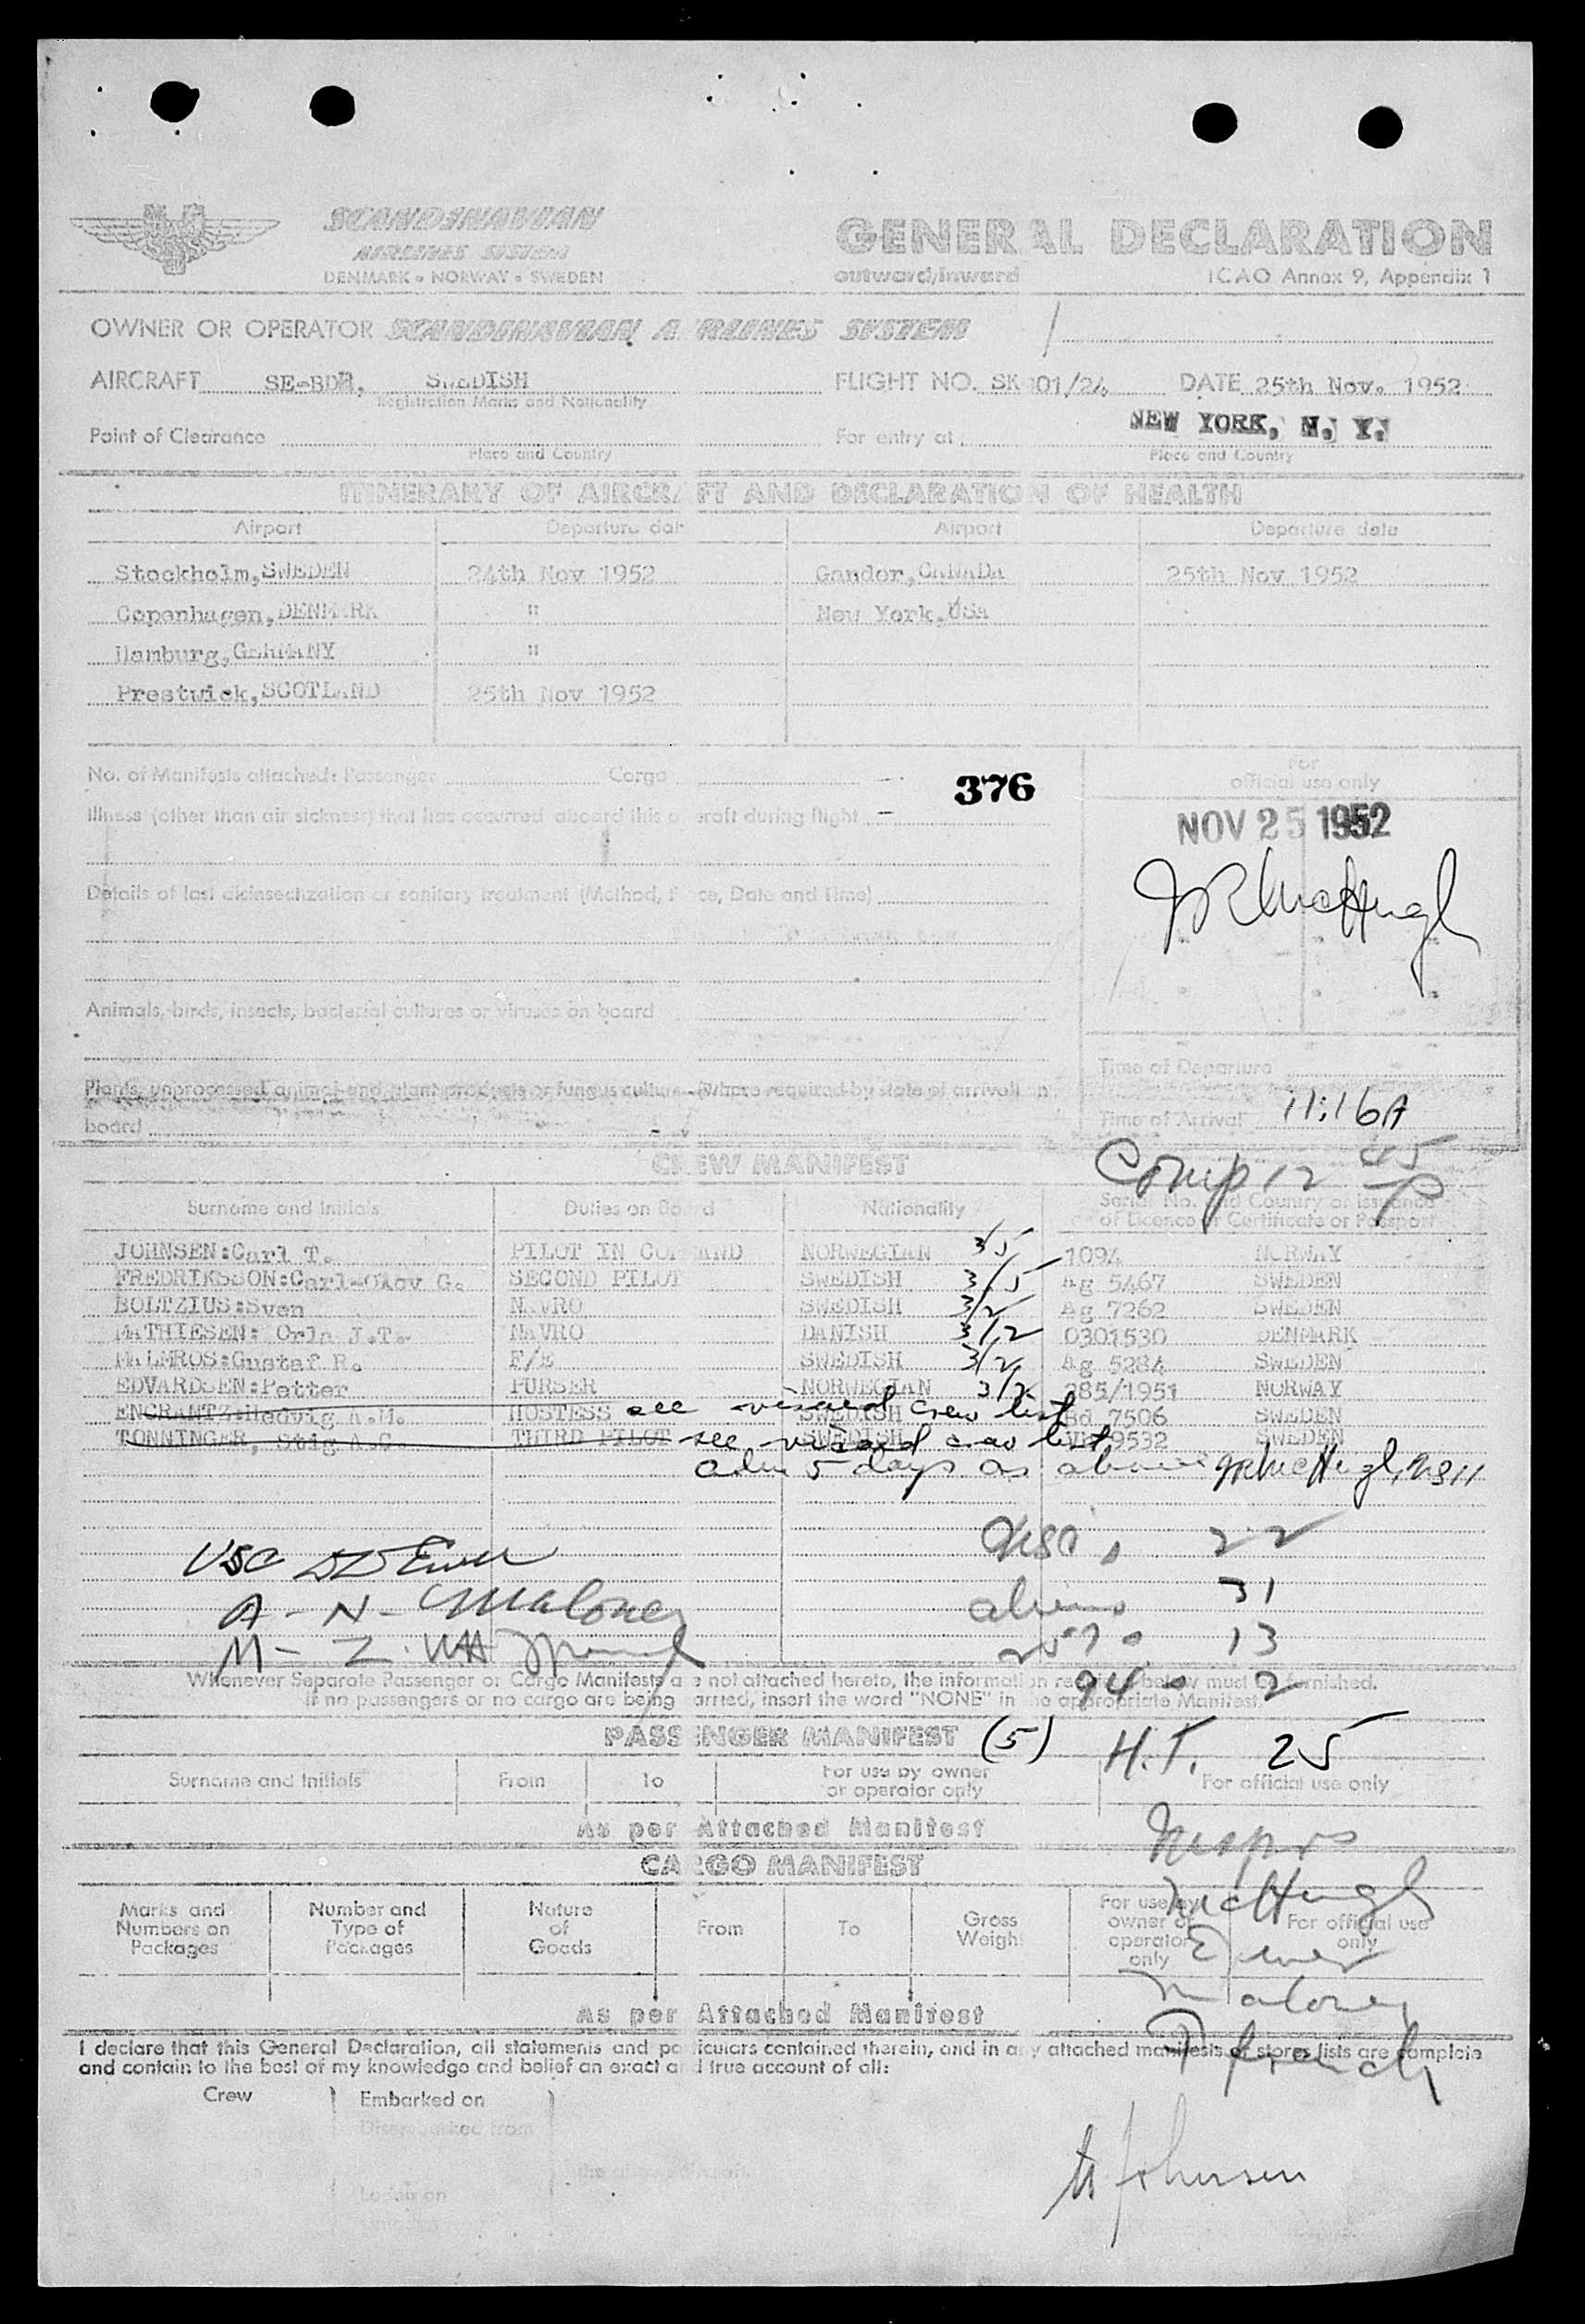 SCANDINAVIAN
AIRLINES SYSTEM
DENMARK • NORWAY • SWEDEN
GENERAL DECLARATION
outward/inward
ICAO Annex 9, Appendix 1
OWNER OR OPERATOR SCANDINAVIAN AIRLINES SYSTEM
AIRCRAFT SE-BDR, SWEDISH FLIGHT NO. SK 901/24 DATE 25th Nov. 1952
Registration Marks and Nationality
Point of Clearance For entry at NEW YORK, N. Y.
Place and Country Place and Country
ITINERARY OF AIRCRAFT AND DECLARATION OF HEALTH
Airport Departure date Airport Departure date
Stockholm, SWEDEN 24th Nov 1952 Gander, CANADA 25th Nov 1952
Copenhagen, DENMARK " New York, USA
Hamburg, GERMANY "
Prestwick, SCOTLAND 25th Nov 1952
No. of Manifests attached: Passenger Cargo
376
Illness (other than air sickness) that has occurred aboard this aircraft during flight -
Details of last disinsectization or sanitary treatment (Method, Place, Date and Time)
Animals, birds, insects, bacterial cultures or viruses on board
Plants, unprocessed animal and plant products or fungus cultures (Where required by state of arrival) on
board -
For
official use only
NOV 25 1952
JR McHugh
Time of Departure
Time of Arrival 11:16A
Comp 12 45 P
CREW MANIFEST
Surname and Initials Duties on Board Nationality Serial No. and Country of issuance
of Licence or Certificate or Passport
JOHNSEN:Carl T. PILOT IN COMMAND NORWEGIAN 3/5 1094 NORWAY
FREDRIKSSON:Carl-Olov G. SECOND PILOT SWEDISH 3/5 Ag 5467 SWEDEN
BOLTZIUS:Sven NAVRO SWEDISH 3/2 Ag 7262 SWEDEN
MATHIESEN: Orla J.T. NAVRO DANISH 3/2 0301530 DENMARK
MALMROS:Gustaf R. F/E SWEDISH 3/2 Ag 5284 SWEDEN
EDVARDSEN:Petter PURSER NORWEGIAN 3/2 285/1951 NORWAY
ENGRANTZ:Hedvig A.M. HOSTESS see visaed crew list SWEDISH Bd 7506 SWEDEN
TONNINGER, Stig A.C. THIRD PILOT see visaed crew list SWEDISH 9532 SWEDEN
adm 5 days as above JR McHugh
22
aliens 31
13
94 2
A - N - Maloney
M - Z
Whenever Separate Passenger or Cargo Manifests are not attached hereto, the information required below must be furnished.
If no passengers or no cargo are being carried, insert the word "NONE" in the appropriate Manifest.
PASSENGER MANIFEST (5) H.T. 25
Surname and Initials From To For use by owner
or operator only For official use only
As per Attached Manifest
CARGO MANIFEST
Marks and
Numbers on
Packages
Number and
Type of
Packages
Nature
of
Goods
From To Gross
Weight
For use by
owner or
operator
only
For official use
only
As per Attached Manifest
Insprs
McHugh
Maloney
I declare that this General Declaration, all statements and particulars contained therein, and in any attached manifests or stores lists are complete
and contain to the best of my knowledge and belief an exact and true account of all:
Crew Embarked on
Disembarked from
the above aircraft
Johnsen